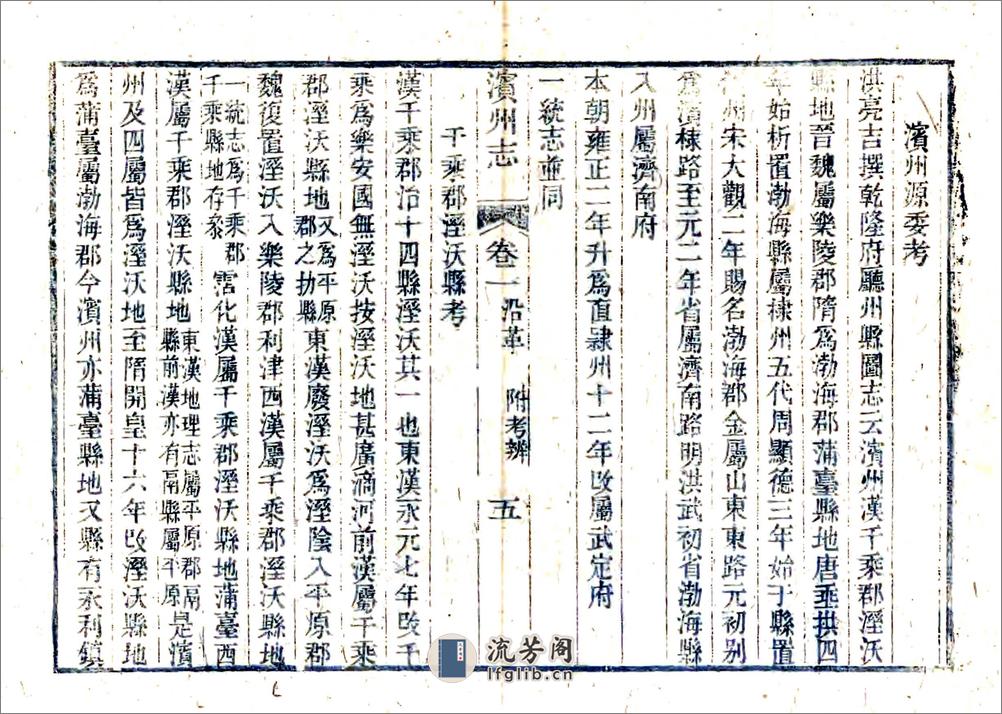 濱州源委考
洪亮吉撰乾隆府廳州縣圖志云濱州漢千乘郡溼沃
縣地晉魏屬樂陵郡隋爲渤海郡蒲臺縣地唐垂拱四
年始析置渤海縣屬棣州五代周顯德三年始于縣置
州宋大觀二年賜名渤海郡金屬山東東路元初别
爲濱棣路至元二年省屬濟南路明洪武初省渤海縣
入州屬濟南府
本朝雍正二年升爲直隸州十二年改屬武定府
一統志並同
濱州志 卷一 沿革 附考辨 五
千乘郡溼沃縣考
漢千乘郡治十四縣溼沃其一也東漢永元七年改千
乘爲樂安國無溼沃按溼沃地甚廣滴河前漢屬千乘
郡溼沃縣地又爲平原郡之朸縣東漢廢溼沃爲溼陰入平原郡
魏復置溼沃入樂陵郡利津西漢屬千乘郡溼沃縣地
一統志爲千乘郡千乘縣地存參霑化漢屬千乘郡溼沃縣地蒲臺西
漢屬千乘郡溼沃縣地東漢地理志屬平原郡鬲縣前漢亦有鬲縣屬平原是濱
州及四屬皆爲溼沃地至隋開皇十六年改溼沃縣地
爲蒲臺屬渤海郡今濱州亦蒲臺縣地又縣有永利鎮
流芳阁
lfglib.cn